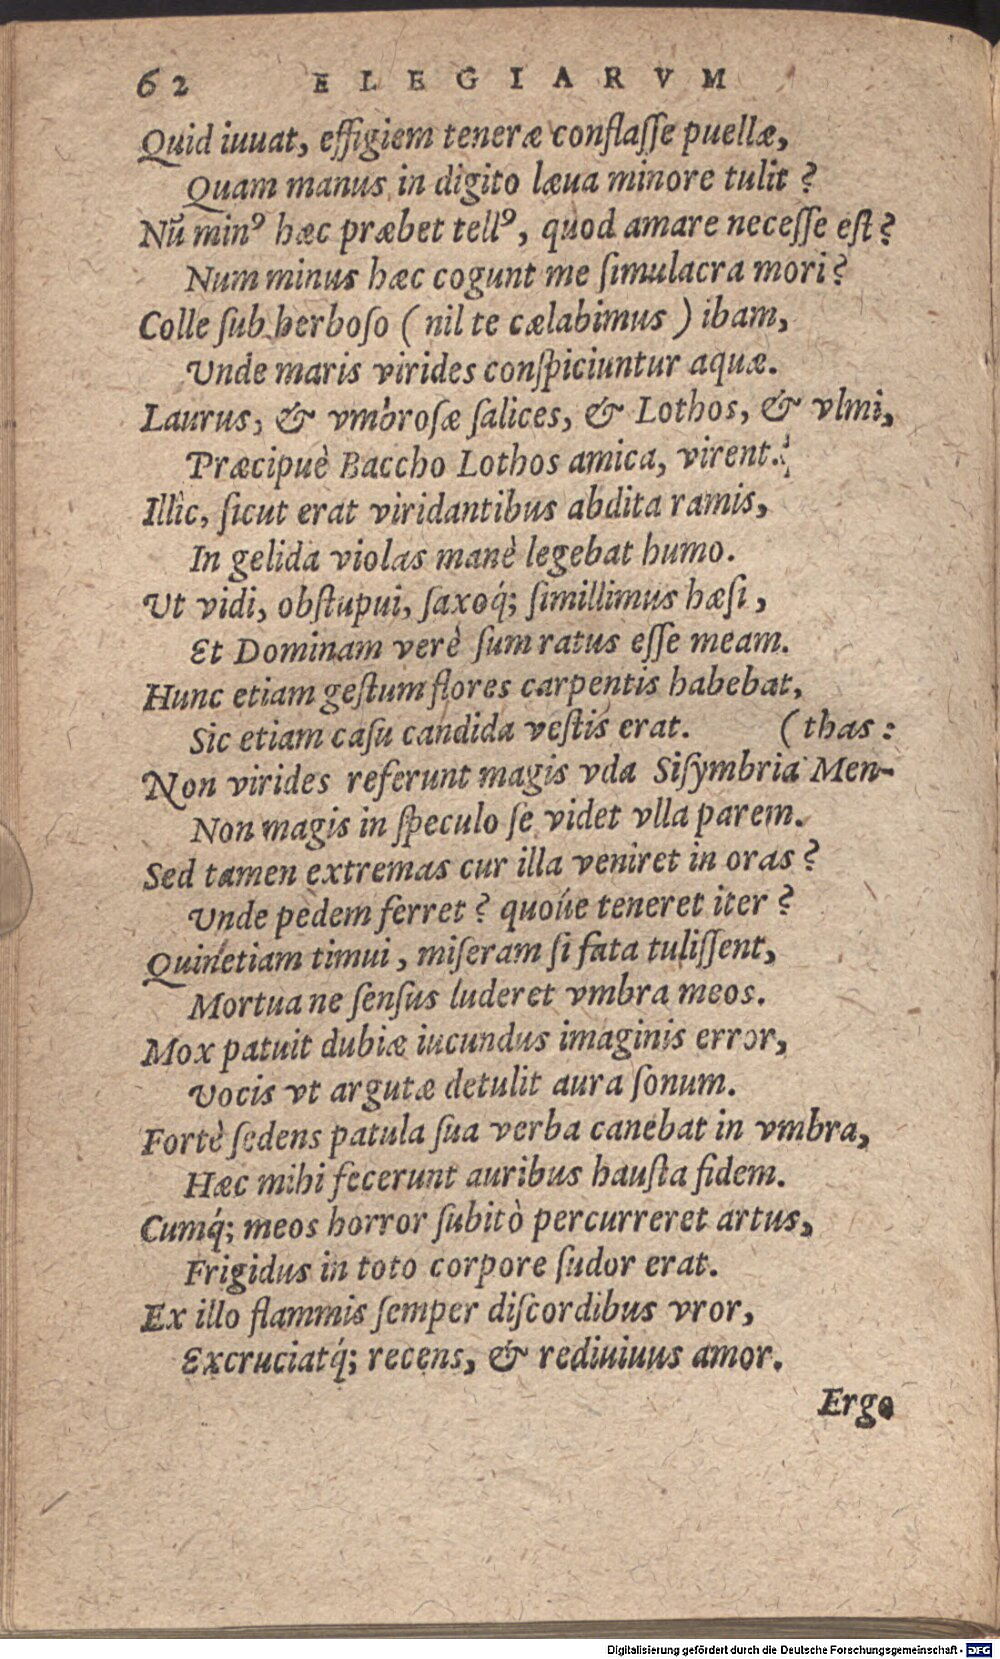 62 ELEGIARVM
Quid iuuat, effigiem teneræ conflaſſe puellæ,
Quam manus in digito læua minore tulit?
Nũ minꝰ hæc præbet tellꝰ, quod amare neceſſe eſt?
Num minus hæc cogunt me ſimulacra mori?
Colle ſub herboſo (nil te cælabimus) ibam,
Unde maris virides conſpiciuntur aquæ.
Laurus, & vmbroſæ ſalices, & Lothos, & vlmi,
Præcipuè Baccho Lothos amica, virent.
Illîc, ſicut erat viridantibus abdita ramis,
In gelida violas manè legebat humo.
Ut vidi, obſtupui, ſaxoq́; ſimillimus hæſi,
Et Dominam verè ſum ratus eſſe meam.
Hunc etiam geſtum flores carpentis habebat,
Sic etiam caſu candida veſtis erat. (thas:
Non virides referunt magis vda Siſymbria Men-
Non magis in ſpeculo ſe videt vlla parem.
Sed tamen extremas cur illa veniret in oras?
Unde pedem ferret? quoúe teneret iter?
Quinetiam timui, miſeram ſi fata tuliſſent,
Mortua ne ſenſus luderet vmbra meos.
Mox patuit dubiæ iucundus imaginis error,
Vocis vt argutæ detulit aura ſonum.
Fortè ſedens patula ſua verba canebat in vmbra,
Hæc mihi fecerunt auribus hauſta fidem.
Cumq́; meos horror ſubitò percurreret artus,
Frigidus in toto corpore ſudor erat.
Ex illo flammis ſemper diſcordibus vror,
Excruciatq́; recens, & rediuiuus amor.
Ergo
Digitalisierung gefördert durch die Deutsche Forschungsgemeinschaft - DFG